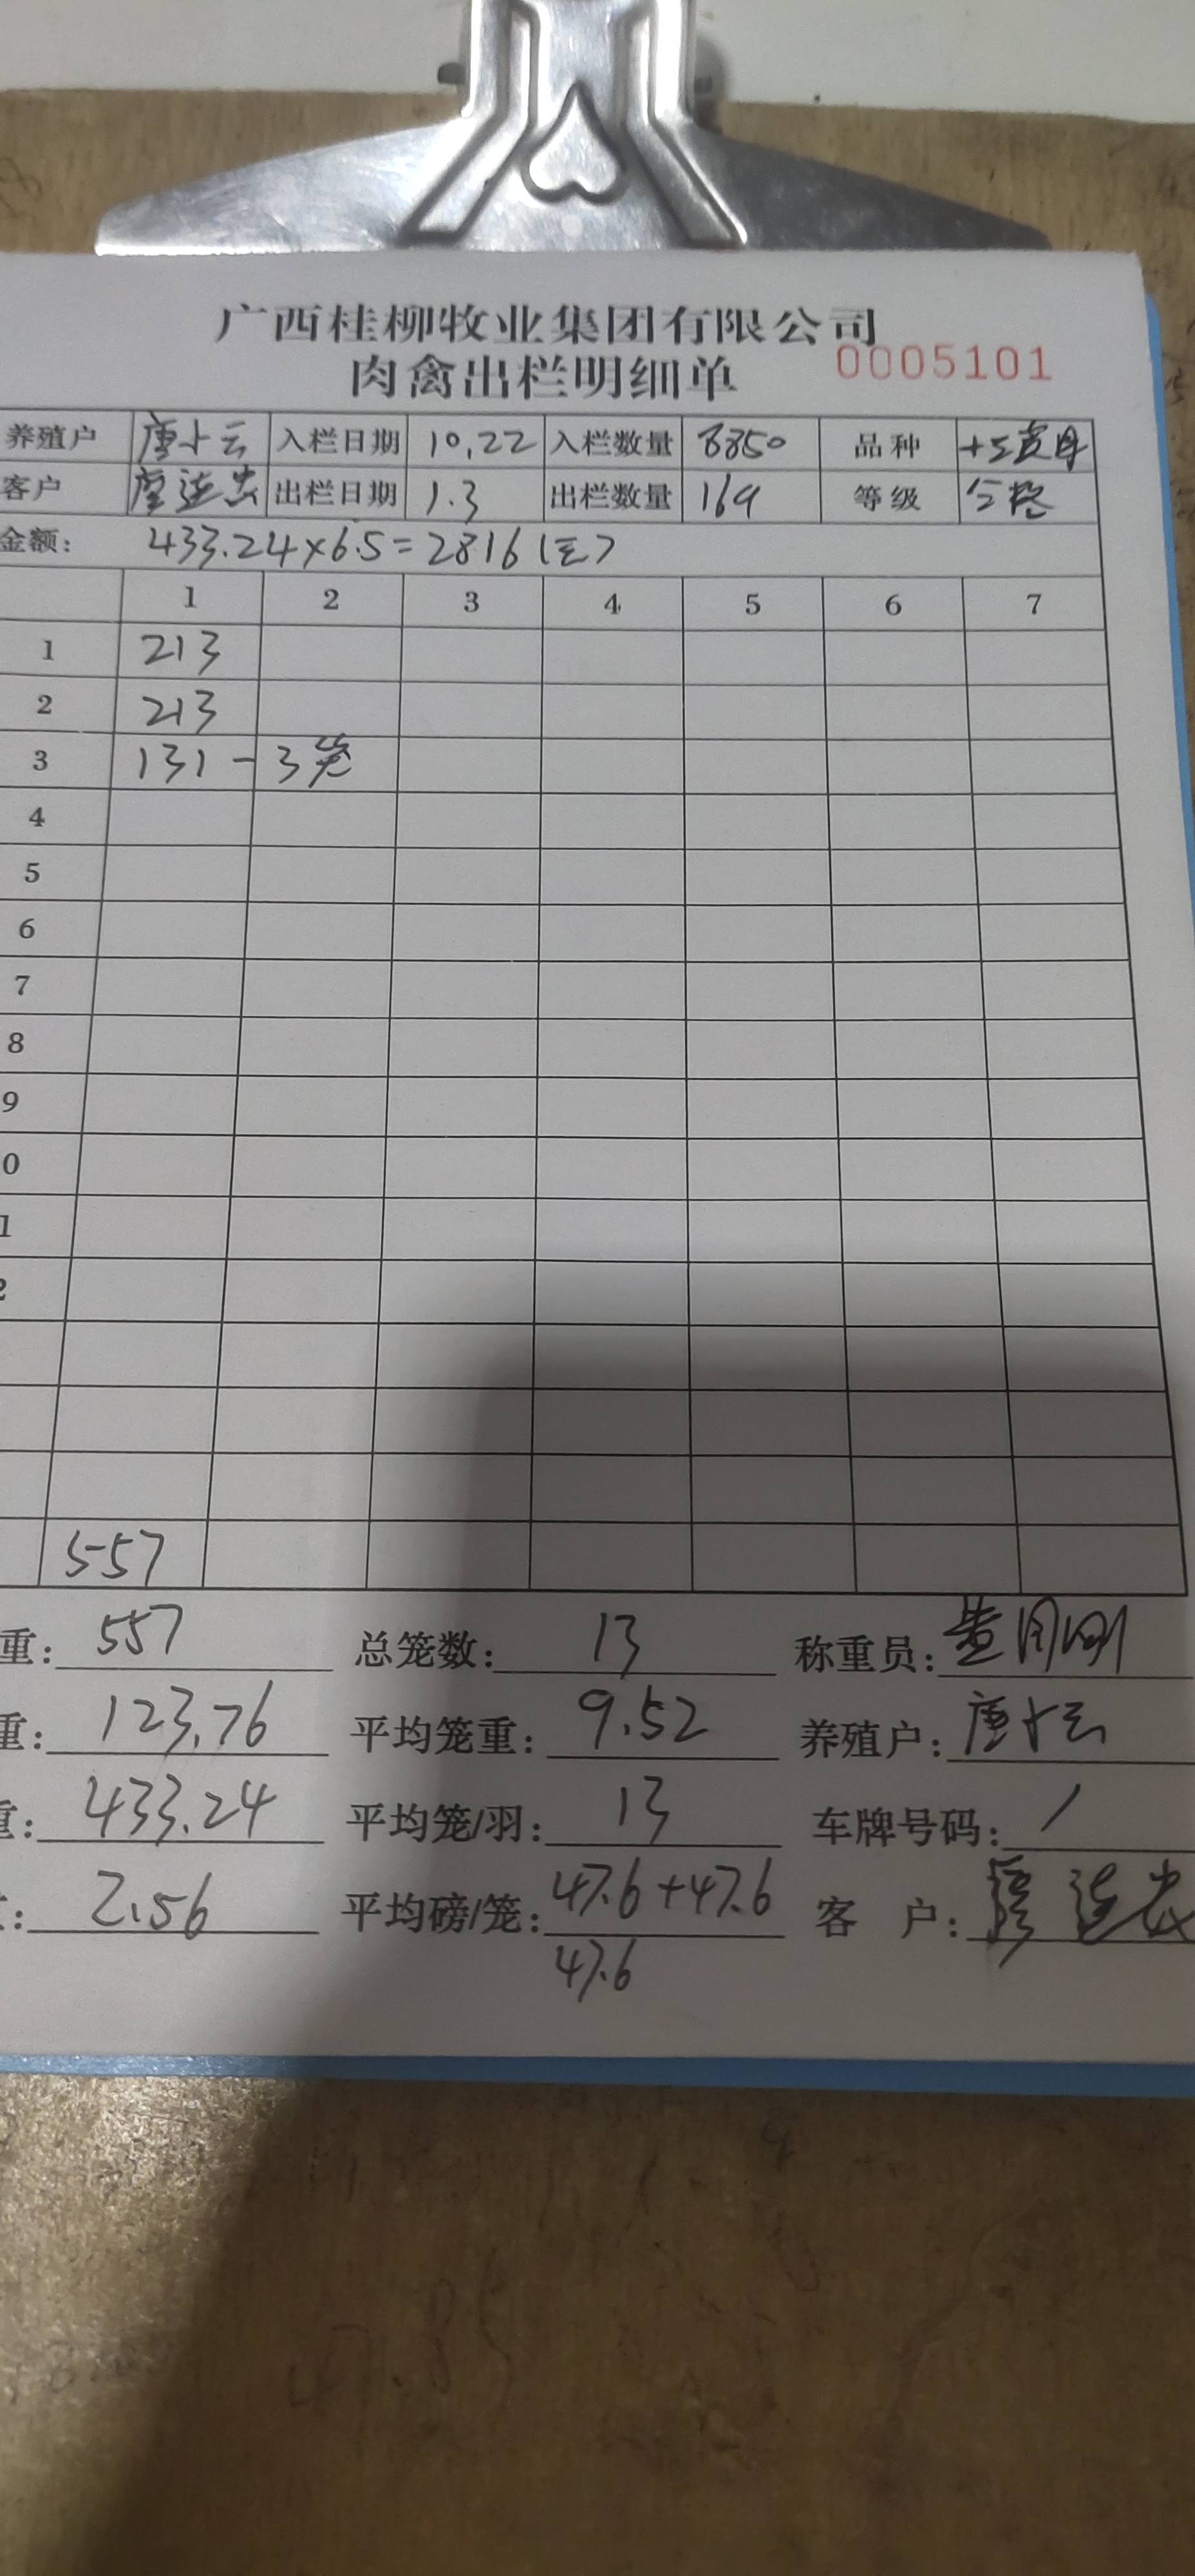 广西桂柳牧业集团有限公司
肉禽出栏明细单 0005101
养殖户 唐小云 入栏日期 10.22 入栏数量 8850 品种
客户 出栏日期 1.3 出栏数量 169 等级 合格
金额: 433.24×6.5=2816(元)
1 2 3 4 5 6 7
1 213
2 213
3 131-3笼
4
5
6
7
8
9
0
1
2
557
重: 557 总笼数: 13 称重员:
重: 123.76 平均笼重: 9.52 养殖户: 唐小云
重: 433.24 平均笼/羽: 13 车牌号码: /
: 2.56 平均磅/笼: 47.6+47.6 客 户:
47.6